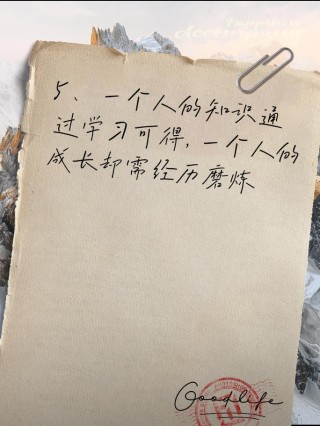 5、一个人的知识通
过学习可得，一个人的
成长却需经历磨炼
Goodlife